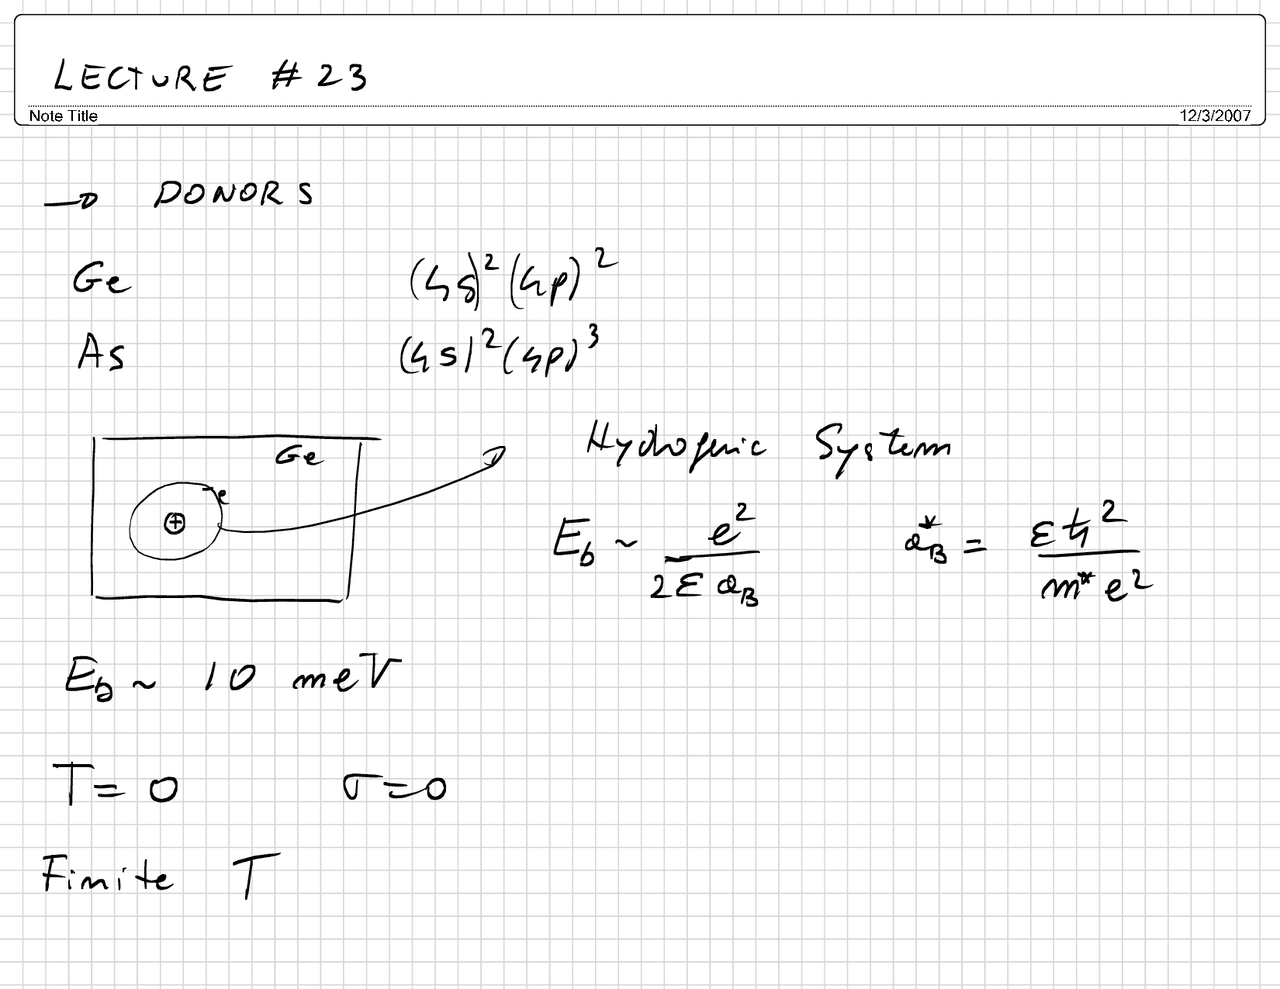 LECTURE # 23
Note Title
12/3/2007
→ DONORS
Ge (4s)² (4p)²
As (4s)² (4p)³
Ge
-e
⊕
Hydrogenic System
E_b ~ e² / 2ε a_B
a*_B = εħ² / m* e²
E_b ~ 10 meV
T = 0 σ = 0
Finite T